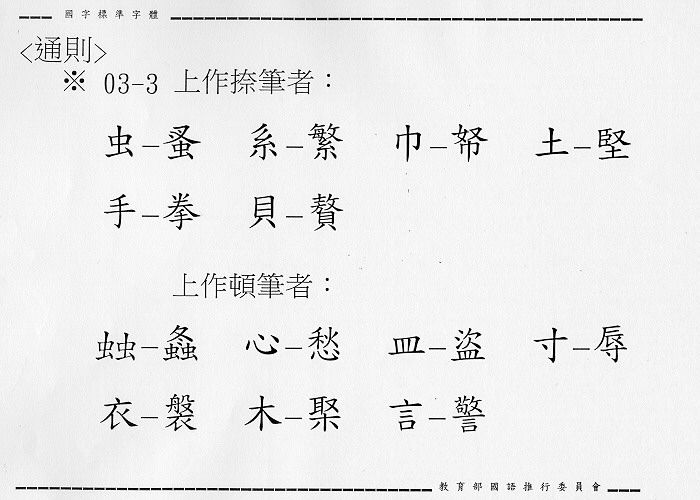 國字標準字體
<通則>
※ 03-3 上作捺筆者：
虫–蚤 系–繁 巾–帑 土–堅
手–拳 貝–贅
上作頓筆者：
䖵–螽 心–愁 皿–盜 寸–辱
衣–褩 木–棸 言–警
教育部國語推行委員會